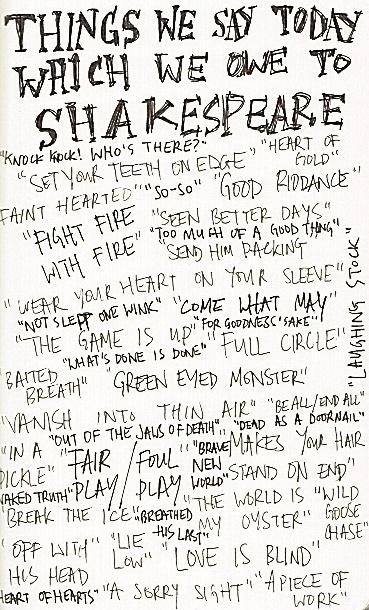 THINGS WE SAY TODAY
WHICH WE OWE TO
SHAKESPEARE
"KNOCK KNOCK! WHO'S THERE?" "HEART OF GOLD"
"SET YOUR TEETH ON EDGE"
FAINT HEARTED" "SO-SO" "GOOD RIDDANCE"
"FIGHT FIRE WITH FIRE" "SEEN BETTER DAYS"
"TOO MUCH OF A GOOD THING"
"SEND HIM PACKING
"WEAR YOUR HEART ON YOUR SLEEVE" "LAUGHING STOCK"
"NOT SLEPP ONE WINK" "COME WHAT MAY"
"THE GAME IS UP" "FOR GOODNESS' SAKE"
"WHAT'S DONE IS DONE" "FULL CIRCLE"
"BAITED BREATH" "GREEN EYED MONSTER"
"VANISH INTO THIN AIR" "BE ALL/END ALL"
"OUT OF THE JAWS OF DEATH" "DEAD AS A DOORNAIL"
"IN A PICKLE" "FAIR PLAY / FOUL PLAY "BRAVE NEW WORLD" MAKES YOUR HAIR STAND ON END"
NAKED TRUTH" "THE WORLD IS MY OYSTER" "WILD GOOSE CHASE"
"BREAK THE ICE" "BREATHED HIS LAST"
"OFF WITH HIS HEAD "LIE LOW" "LOVE IS BLIND"
HEART OF HEARTS" "A SORRY SIGHT" "A PIECE OF WORK"